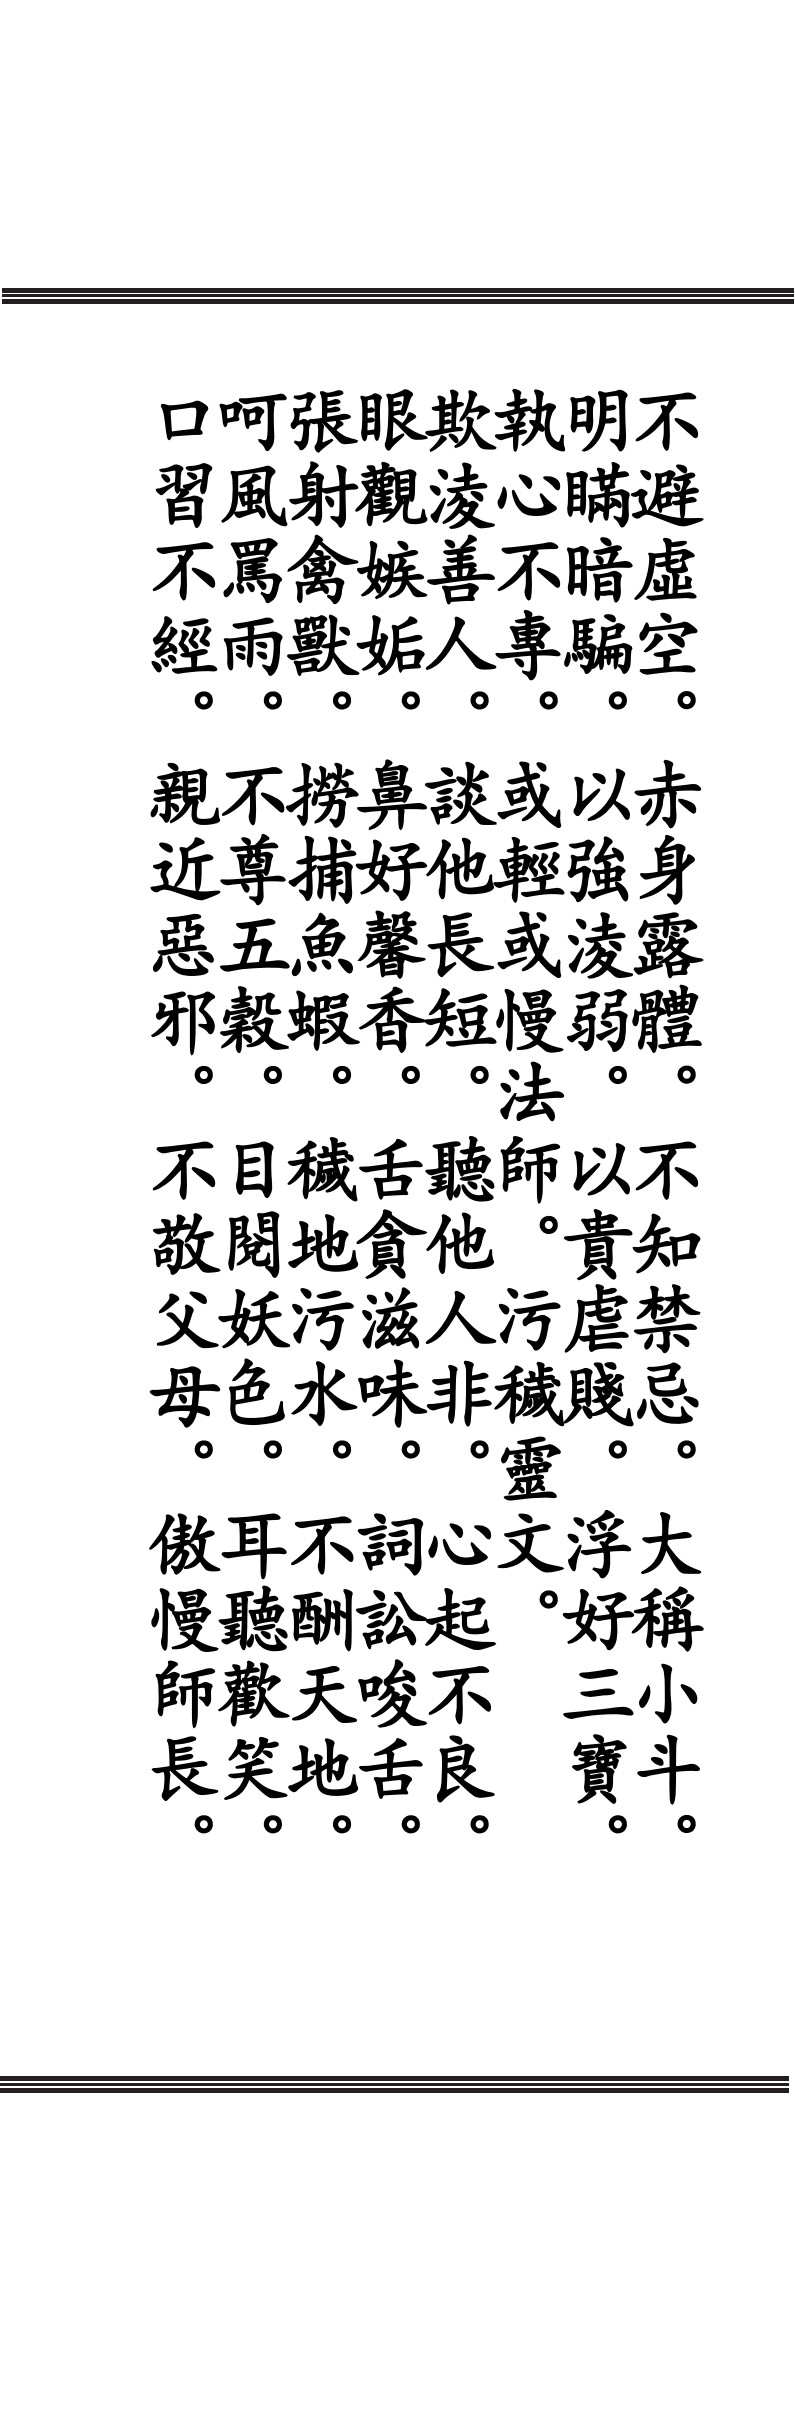 不避虛空。赤身露體。不知禁忌。大稱小斗。
明瞞暗騙。以強淩弱。以貴虐賤。浮好三寶。
執心不專。或輕或慢法師。污穢靈文。
欺淩善人。談他長短。聽他人非。心起不良。
眼觀嫉妬。鼻好馨香。舌貪滋味。詞訟唆舌。
張射禽獸。撈捕魚蝦。穢地污水。不酬天地。
呵風罵雨。不尊五穀。目閱妖色。耳聽歡笑。
口習不經。親近惡邪。不敬父母。傲慢師長。